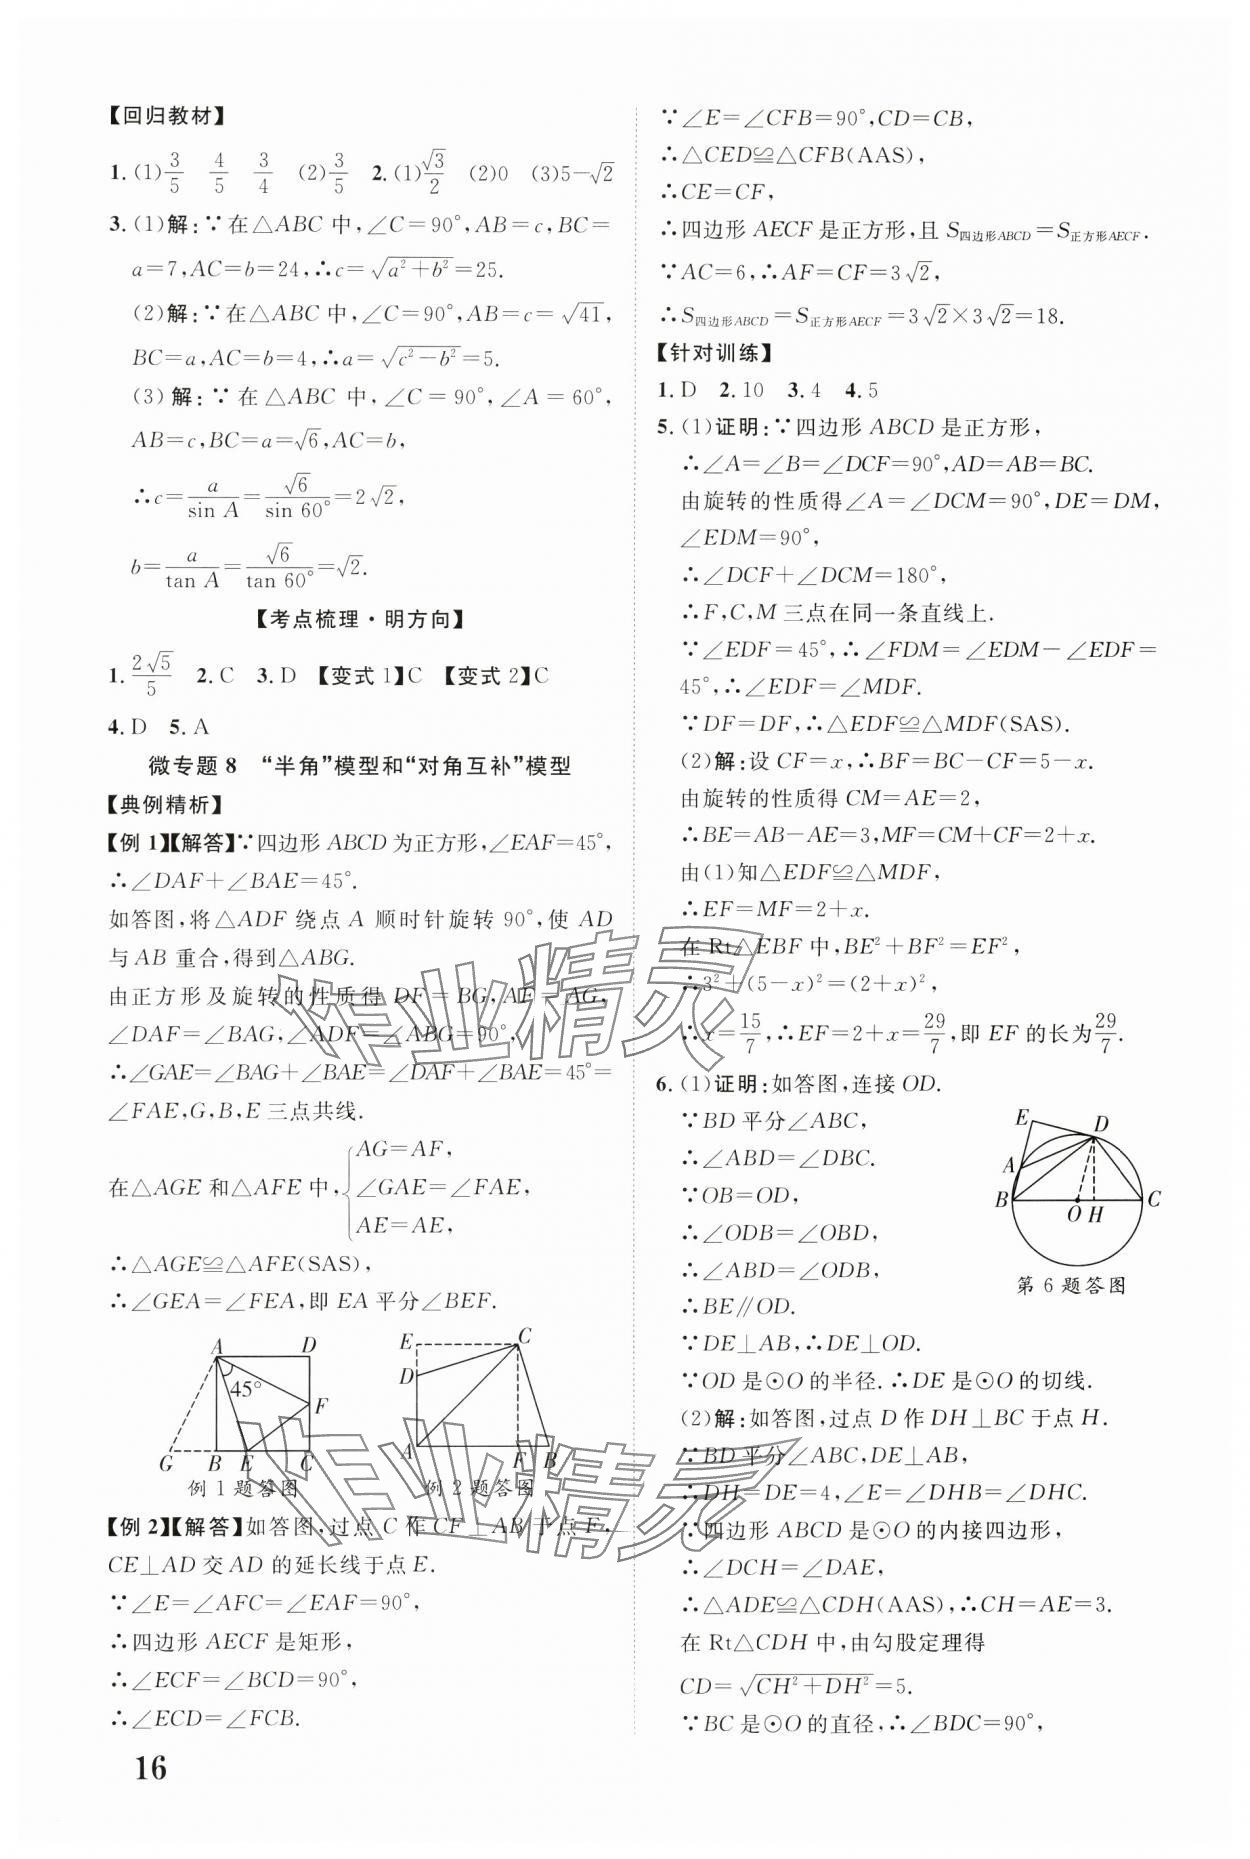 【回归教材】
1.(1)3/5 4/5 3/4 (2)3/5 2.(1)√3/2 (2)0 (3)5-√2
3.(1)解:∵在△ABC中,∠C=90°,AB=c,BC=
a=7,AC=b=24,∴c=√(a²+b²)=25.
(2)解:∵在△ABC中,∠C=90°,AB=c=√41,
BC=a,AC=b=4,∴a=√(c²-b²)=5.
(3)解:∵在△ABC中,∠C=90°,∠A=60°,
AB=c,BC=a=√6,AC=b,
∴c=a/sin A=√6/sin 60°=2√2,
b=a/tan A=√6/tan 60°=√2.
【考点梳理·明方向】
1.2√5/5 2.C 3.D 【变式1】C 【变式2】C
4.D 5.A
微专题8 “半角”模型和“对角互补”模型
【典例精析】
【例1】【解答】∵四边形ABCD为正方形,∠EAF=45°,
∴∠DAF+∠BAE=45°.
如答图,将△ADF绕点A顺时针旋转90°,使AD
与AB重合,得到△ABG.
由正方形及旋转的性质得DF=BG,AE=AG,
∠DAF=∠BAG,∠ADF=∠ABG=90°,
∴∠GAE=∠BAG+∠BAE=∠DAF+∠BAE=45°=
∠FAE,G,B,E三点共线.
在△AGE和△AFE中,
AG=AF,
∠GAE=∠FAE,
AE=AE,
∴△AGE≌△AFE(SAS),
∴∠GEA=∠FEA,即EA平分∠BEF.
A D 45° F G B E C
例1题答图
E C D A F B
例2题答图
【例2】【解答】如答图,过点C作CF⊥AB于点F,
CE⊥AD交AD的延长线于点E.
∵∠E=∠AFC=∠EAF=90°,
∴四边形AECF是矩形,
∴∠ECF=∠BCD=90°,
∴∠ECD=∠FCB.
16
∵∠E=∠CFB=90°,CD=CB,
∴△CED≌△CFB(AAS),
∴CE=CF,
∴四边形AECF是正方形,且S四边形ABCD=S正方形AECF.
∵AC=6,∴AF=CF=3√2,
∴S四边形ABCD=S正方形AECF=3√2×3√2=18.
【针对训练】
1.D 2.10 3.4 4.5
5.(1)证明:∵四边形ABCD是正方形,
∴∠A=∠B=∠DCF=90°,AD=AB=BC.
由旋转的性质得∠A=∠DCM=90°,DE=DM,
∠EDM=90°,
∴∠DCF+∠DCM=180°,
∴F,C,M三点在同一条直线上.
∵∠EDF=45°,∴∠FDM=∠EDM-∠EDF=
45°,∴∠EDF=∠MDF.
∵DF=DF,∴△EDF≌△MDF(SAS).
(2)解:设CF=x,∴BF=BC-CF=5-x.
由旋转的性质得CM=AE=2,
∴BE=AB-AE=3,MF=CM+CF=2+x.
由(1)知△EDF≌△MDF,
∴EF=MF=2+x.
在Rt△EBF中,BE²+BF²=EF²,
∴3²+(5-x)²=(2+x)²,
∴x=15/7,∴EF=2+x=29/7,即EF的长为29/7.
6.(1)证明:如答图,连接OD.
∵BD平分∠ABC,
∴∠ABD=∠DBC.
∵OB=OD,
∴∠ODB=∠OBD,
∴∠ABD=∠ODB,
∴BE∥OD.
∵DE⊥AB,∴DE⊥OD.
E D A B O H C
第6题答图
∵OD是⊙O的半径.∴DE是⊙O的切线.
(2)解:如答图,过点D作DH⊥BC于点H.
∵BD平分∠ABC,DE⊥AB,
∴DH=DE=4,∠E=∠DHB=∠DHC.
∵四边形ABCD是⊙O的内接四边形,
∴∠DCH=∠DAE,
∴△ADE≌△CDH(AAS),∴CH=AE=3.
在Rt△CDH中,由勾股定理得
CD=√(CH²+DH²)=5.
∵BC是⊙O的直径,∴∠BDC=90°,
作业精灵
作业精灵